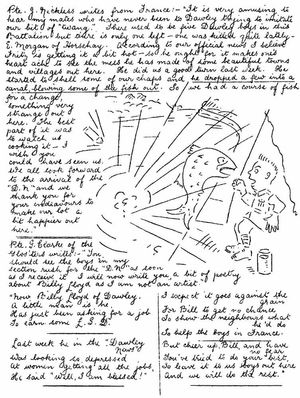 Pte. J. Nickless writes from France:- "It is very amusing to
hear my mates who have never been to Dawley trying to imitate
our bit of 'twang'. There used to be six Dawley lads in this
Battalion but there is only one left - one was killed quite lately -
E. Morgan of Horsehay. (According to our official news I believe
Fritz is getting it a bit hot - so he ought for it makes one's
heart ache to see the mess he has made of some beautiful towns
and villages out here. He did us a good turn last week. He
started to shell some of our chaps and he dropped a few into a
canal, blowing some of the fish out. So we had a course of fish
for a change.
Something very
strange out
here. The best
part of it was
to watch us
cooking it - I
wish you
could have seen us.
We all look forward
to the arrival of the
"D.N." and we
thank you for
your endeavours to
make our lot a
bit happier out
here."
Pte. J. Clarke of the
Glosters writes:- "You
should see the boys in my
section rush for the "D.N." as soon
as I receive it. I will now write you a bit of poetry
about Billy Floyd as I am not an artist.
"Now Billy Floyd of Dawley,
A little man is he
Has just been asking for a job
To earn some L.S.D.
Last week he in the "Dawley
News"
Was looking so depressed
At women getting all the jobs,
He said "Well, I am blessed!"
I expect it goes against the
grain
For Bill to get no chance
To show the neighbours what
he'd do
To help the boys in France.
But cheer up, Bill, and have
no fear
You've tried to do your best,
So leave it to us boys out here
And we will do the rest."